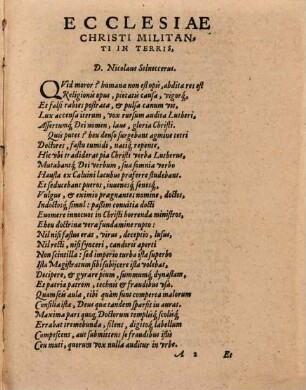 ECCLESIAE
CHRISTI MILITAN-
TI IN TERRIS,
D. Nicolaus Selneccerus.
QVid moror? humana non est opis, abdita res est
Religionis opus, pietatis causa, vigorq́,
Et falsi rabies postrata, & pulsa canum vis,
Lux accensa iterum, vox rursum audita Lutheri,
Assertumq́ Dei nomen, laus, gloria Christi.
Quis putet? heu denso surgebant agmine tetri
Doctores, fastu tumidi, nasiq́, repente,
Hic vbi tradideras pia Christi verba Lutherus,
Mutabantq́ Dei verbum, sua somnia verbo
Hausta ex Caluini lacubus praeferre studebant.
Et seducebant pueros, iuuenesq́, senesq́,
Vulgus, & eximio praegnantes nomine, doctos,
Indoctosq́ simul: passim conuitia docti
Euomere innocuos in Christi horrenda ministros,
Eheu doctrinae vera fundamine rupto:
Nil nisi fastus eras, virus, deceptio, lusus,
Nil recti, nil synceri, candoris aperti
Non scintilla: sed imperio turba ista superbo
Ista Magistratum sibi subijcere ista volebat,
Decipere, & gyrare pium, summumq́, dynastam,
Et patria patrem, technis & fraudibus vsa.
Quamseis aula, tibi quàm sunt comperta malorum
Consilia ista, Deus quae tandem sparsit in auras.
Maxima pars quoq́, Doctorum templiq́, scoliq́,
Errabat tremebunda, silens, digitoq́ labellum
Compescens, aut submittens se fraudibus istis
Ceu muti, quorum vox nulla auditur in vrbe.
A 2 Et